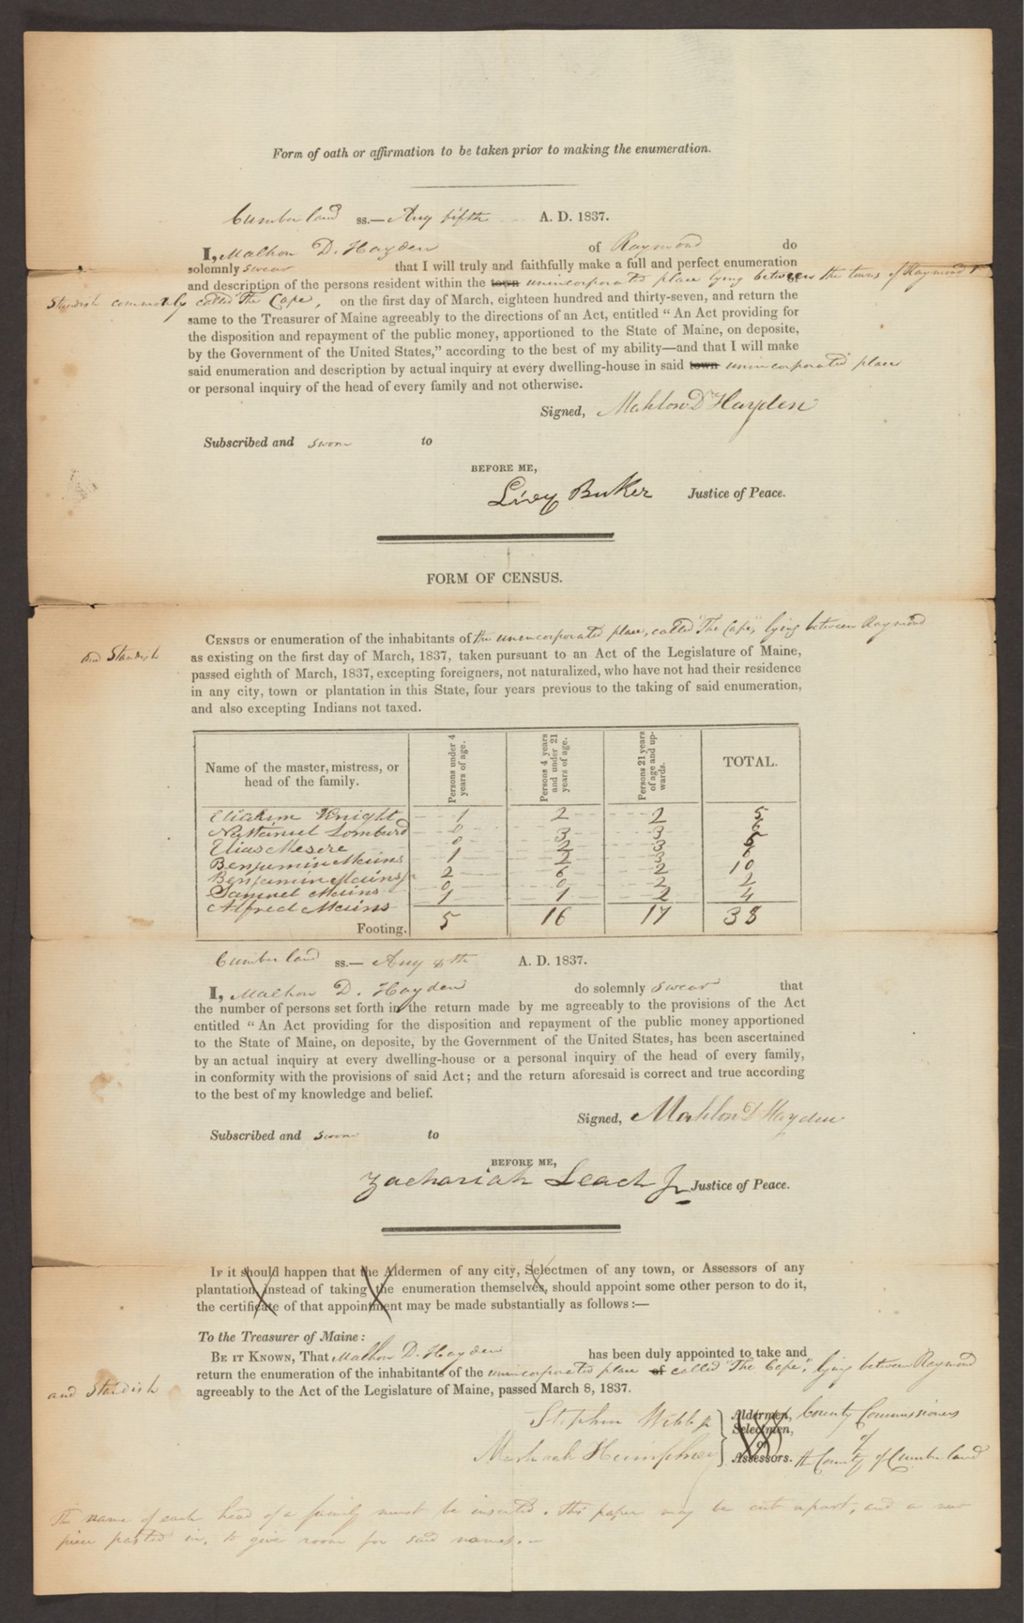 Form of oath or affirmation to be taken prior to making the enumeration.
Cumberland ss.— Aug fifth A. D. 1837.
I, Malhon D. Hayden of Raymond do
solemnly swear that I will truly and faithfully make a full and perfect enumeration
and description of the persons resident within the town unincorporated place lying between the towns of Raymond &
Standish commonly called The Cape, on the first day of March, eighteen hundred and thirty-seven, and return the
same to the Treasurer of Maine agreeably to the directions of an Act, entitled “ An Act providing for
the disposition and repayment of the public money, apportioned to the State of Maine, on deposite,
by the Government of the United States,” according to the best of my ability—and that I will make
said enumeration and description by actual inquiry at every dwelling-house in said town unincorporated place
or personal inquiry of the head of every family and not otherwise.
Signed, Mahlon D Hayden
Subscribed and sworn to
BEFORE ME,
Levy Buker Justice of Peace.
FORM OF CENSUS.
CENSUS or enumeration of the inhabitants of the unincorporated place, called "The Cape," lying between Raymond
and Standish as existing on the first day of March, 1837, taken pursuant to an Act of the Legislature of Maine,
passed eighth of March, 1837, excepting foreigners, not naturalized, who have not had their residence
in any city, town or plantation in this State, four years previous to the taking of said enumeration,
and also excepting Indians not taxed.
Name of the master, mistress, or head of the family. Persons under 4 years of age. Persons 4 years and under 21 years of age. Persons 21 years of age and upwards. TOTAL.
Eliakim Knight 1 2 2 5
Nathaniel Lombard 0 3 3 6
Elias Mesere 0 2 3 5
Benjamin Mains 1 2 3 6
Benjamin Mains Jr 2 6 2 10
Samuel Mains 0 0 2 2
Alfred Mains 1 1 2 4
Footing. 5 16 17 38
Cumberland ss.— Aug 8th A. D. 1837.
I, Malhon D. Hayden do solemnly swear that
the number of persons set forth in the return made by me agreeably to the provisions of the Act
entitled “ An Act providing for the disposition and repayment of the public money apportioned
to the State of Maine, on deposite, by the Government of the United States, has been ascertained
by an actual inquiry at every dwelling-house or a personal inquiry of the head of every family,
in conformity with the provisions of said Act; and the return aforesaid is correct and true according
to the best of my knowledge and belief.
Signed, Mahlon D Hayden
Subscribed and sworn to
BEFORE ME,
Zachariah Leach Jr Justice of Peace.
IF it should happen that the Aldermen of any city, Selectmen of any town, or Assessors of any
plantation, instead of taking the enumeration themselves, should appoint some other person to do it,
the certificate of that appointment may be made substantially as follows :—
To the Treasurer of Maine :
BE IT KNOWN, That Malhon D. Hayden has been duly appointed to take and
return the enumeration of the inhabitants of the unincorporated place of called "The Cape", lying between Raymond
and Standish agreeably to the Act of the Legislature of Maine, passed March 8, 1837.
Stephen Webb Aldermen, County Commissioners
Selectmen, of
Meshach Humphrey or Assessors. County of Cumberland
The name of each head of a family must be inserted. This paper may be cut apart, and a new
piece pasted in, to give room for said names.—